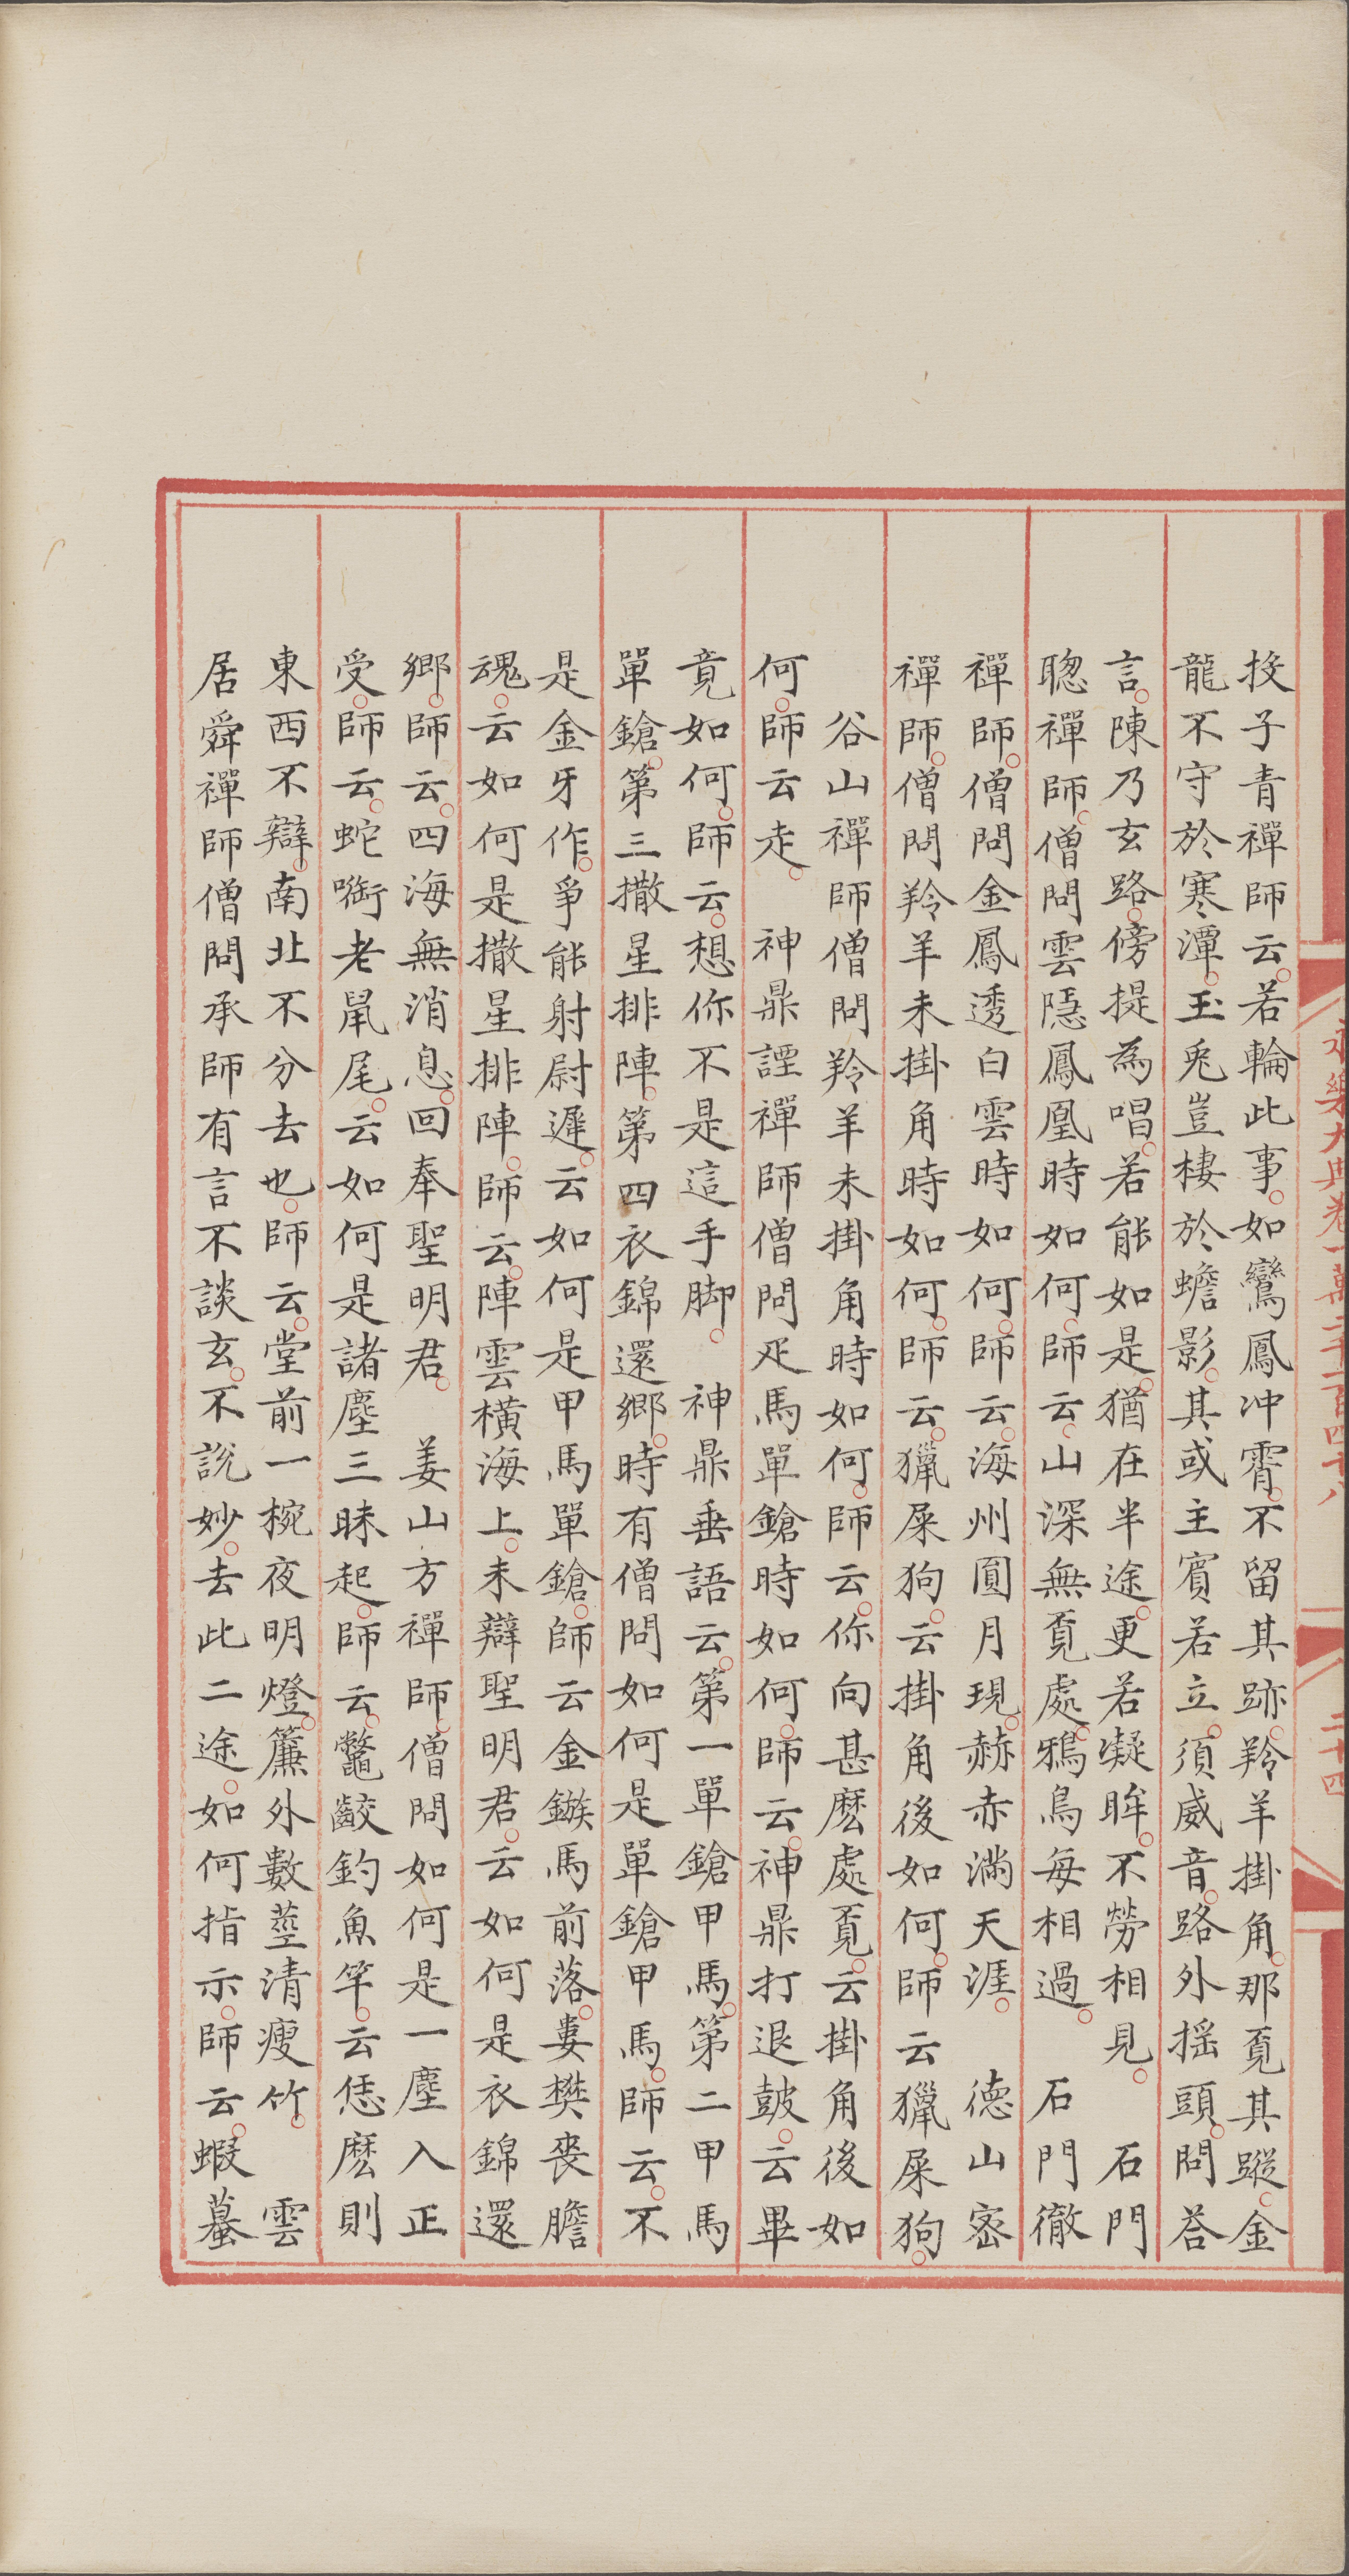 投子青禪師云。若輪此事。如鸞鳳冲霄。不留其跡。羚羊掛角。那覔其蹤。金
龍不守於寒潭。玉兎豈棲於蟾影。其或主賓若立。須威音路外揺頭。問荅
言。陳乃玄路。傍提為唱。若能如是。猶在半途。更若凝眸。不勞相見。　石門
聦禪師。僧問雲隱鳳凰時如何。師云。山深無覔處。鴉鳥每相過。　石門徹
禪師。僧問金鳳透白雲時如何。師云。海州圓月現。赫赤滿天涯。　德山密
禪師。僧問羚羊未掛角時如何。師云。獵屎狗。云掛角後如何。師云獵屎狗。
谷山禪師僧問羚羊未掛角時如何。師云。你向甚麽處覔。云掛角後如
何。師云走。　神鼎諲禪師僧問疋馬單鎗時如何。師云。神鼎打退鼓。云畢
竟如何。師云。想你不是這手脚。　神鼎垂語云。第一單鎗甲馬。第二甲馬
單鎗。第三撒星排陣。第四衣錦還鄉。時有僧問如何是單鎗甲馬。師云。不
是金牙作。爭能射尉遲。云如何是甲馬單鎗。師云金鏃馬前落。婁樊喪膽
魂。云如何是撒星排陣。師云。陣雲横海上。未辯聖明君。云如何是衣錦還
鄉。師云。四海無消息。回奉聖明君。　姜山方禪師。僧問如何是一塵入正
受。師云。蛇㘅老鼠尾。云如何是諸塵三昧起。師云。鼈齩釣魚竿。云恁麽則
東西不辯。南北不分去也。師云。堂前一椀夜明燈。簾外數莖清瘦竹。　雲
居舜禪師僧問承師有言不談玄。不說妙。去此二途。如何指示。師云。蝦蟇
永樂大典卷一萬二千一百四十八
二十四